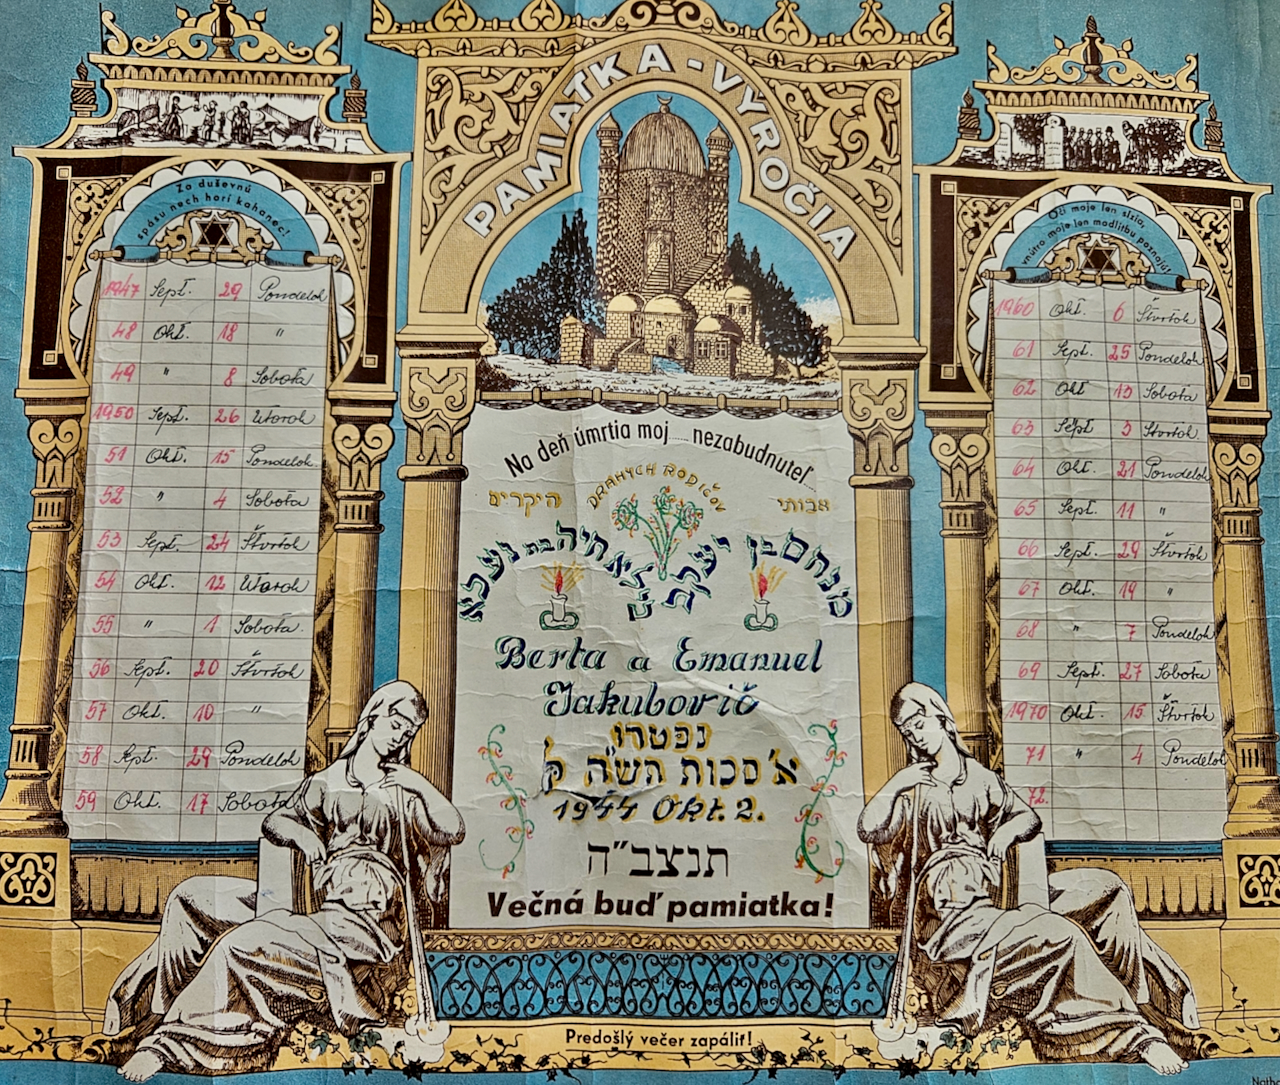 PAMIATKA - VYROČIA
Za duševnú
spásu nech horí kahanec!
1947 Sept. 29 Pondelok
48 Okt. 18 "
49 " 8 Sobota
1950 Sept. 26 Utorok
51 Okt. 15 Pondelok
52 " 4 Sobota
53 Sept. 24 Štvrtok
54 Okt. 12 Utorok
55 " 1 Sobota
56 Sept. 20 Štvrtok
57 Okt. 10 "
58 Sept. 29 Pondelok
59 Okt. 17 Sobota
Na deň úmrtia moj..... nezabudnuteľ...
DRAHÝCH RODIČOV
אבותי היקרים
מנחם בן יעקב
לאה חיה בת נעכא
Berta a Emanuel
Jakubovič
נפטרו
א' סכות תש"ה
1944 Okt. 2.
תנצב"ה
Večná buď pamiatka!
Oči moje len slzia,
vnútro moje len modlitbu poznajú!
1960 Okt. 6 Štvrtok
61 Sept. 25 Pondelok
62 Okt 13 Sobota
63 Sept 3 Štvrtok
64 Okt. 21 Pondelok
65 Sept. 11 "
66 Sept. 29 Štvrtok
67 Okt. 19 "
68 " 7 Pondelok
69 Sept. 27 Sobota
1970 Okt. 15 Štvrtok
71 " 4 Pondelok
72.
Predošlý večer zapáliť!